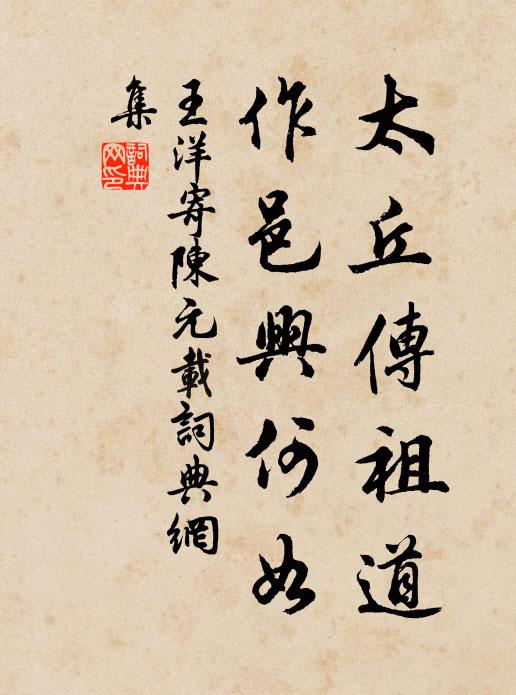 太丘傳祖道
作邑興何如
王洋寄陳元載詞典網
集
詞典
網印